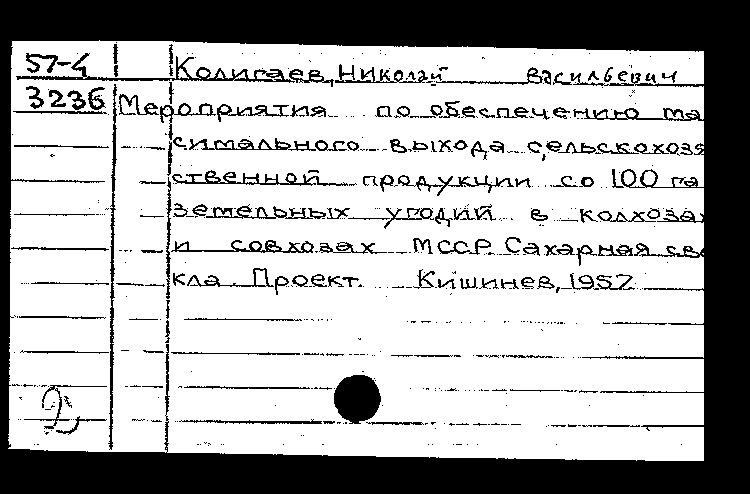 57-4 Колигаев, Николай Васильевич
3236 Мероприятия по обеспечению ма
симального выхода сельскохозя
ственной продукции со 100 га
земельных угодий в колхозах
и совхозах МССР. Сахарная све
кла. Проект. Кишинев, 1957
2